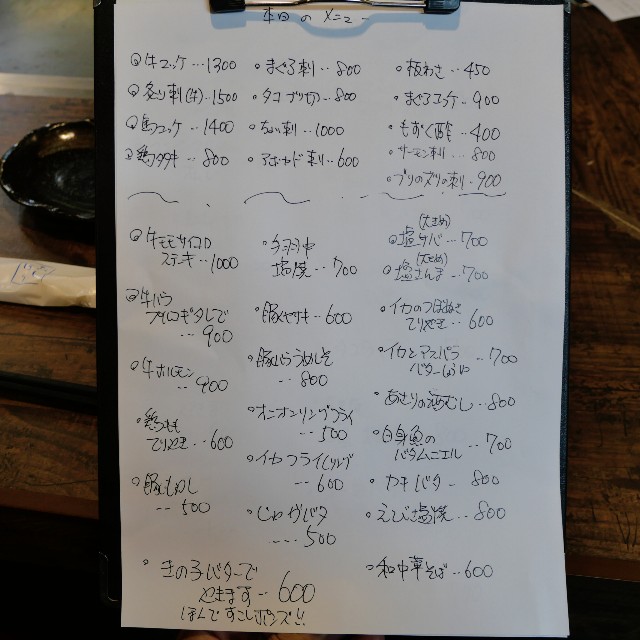 本日のメニュー
牛ユッケ…1300
炙り刺(牛)…1500
馬ユッケ…1400
鶏タタキ…800
まぐろ刺…800
タコブツ切…800
ちょい刺…1000
アボカド刺…600
板わさ…450
まぐろユッケ…900
もずく酢…400
サーモン刺…800
ブリのヌリの刺…900
牛モモサイコロ
ステキ…1000
牛バラ
…900
牛ホルモン
…900
鶏もも
てりやき…600
豚
…500
塩焼…700
豚
600
豚バラうめしそ
…800
オニオンリングフライ
…500
イカフライ(リング)
…600
じゃがバタ
…500
(大きめ)
塩サバ…700
(大きめ)
塩さんま…700
イカのつぼぬき
てりやき…600
イカとアスパラ
バター…700
あさりの酒むし…800
白身魚の
バタムニエル…700
カキバター…800
えび塩焼…800
和中華そば…600
きの子バターで
やきます…600
ほんですこしポンズ!!